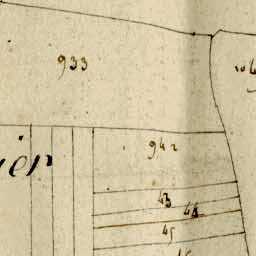 933
942
ier
43
44
45